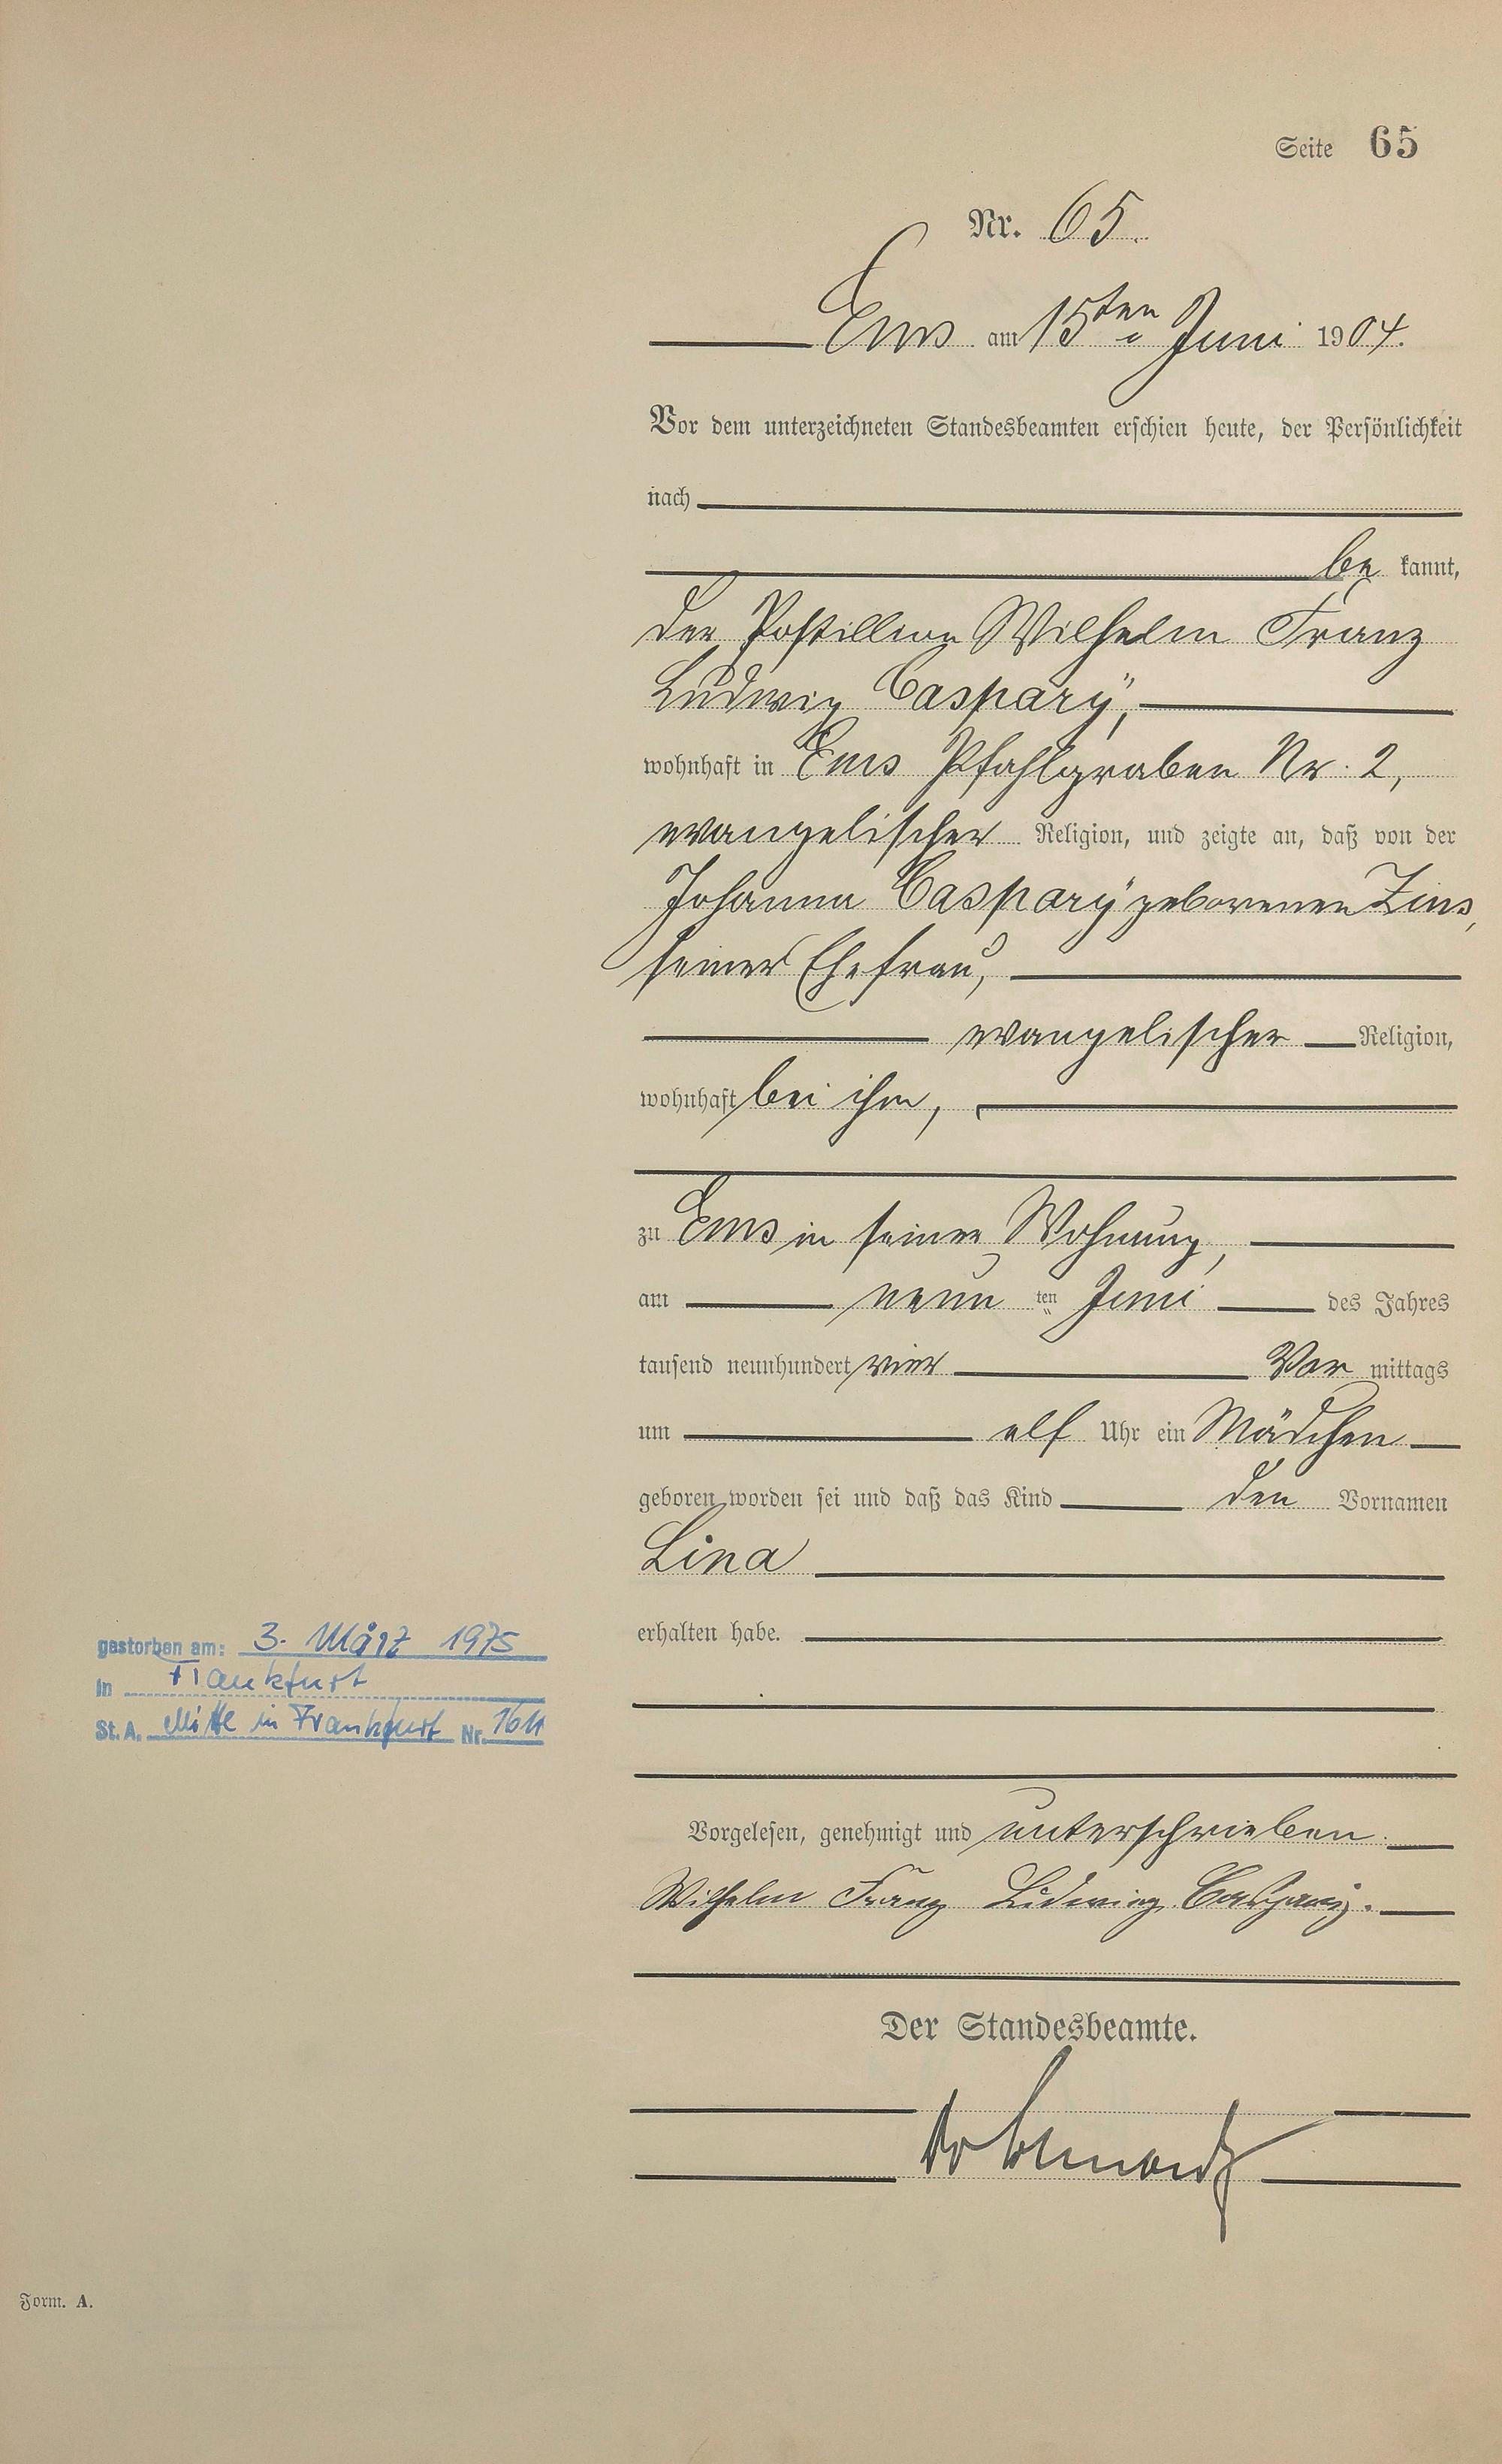 Seite 65
Nr. 65.
Ems am 15ten Juni 1904.
Vor dem unterzeichneten Standesbeamten erschien heute, der Persönlichkeit
nach
be kannt,
der Postillion Wilhelm Franz
Ludwig Caspary,
wohnhaft in Ems Pfahlgraben Nr. 2,
evangelischer Religion, und zeigte an, daß von der
Johanna Caspary geborenen Zins,
seiner Ehefrau,
evangelischer Religion,
wohnhaft bei ihm,
zu Ems in seiner Wohnung,
am neun ten Juni des Jahres
tausend neunhundert vier Vor mittags
um elf Uhr ein Mädchen
geboren worden sei und daß das Kind den Vornamen
Lina
erhalten habe.
gestorben am: 3. März 1975
in Frankfurt
St. A. Mitte in Frankfurt Nr. 1611
Vorgelesen, genehmigt und unterschrieben.
Wilhelm Franz Ludwig Caspary.
Der Standesbeamte.
Form. A.